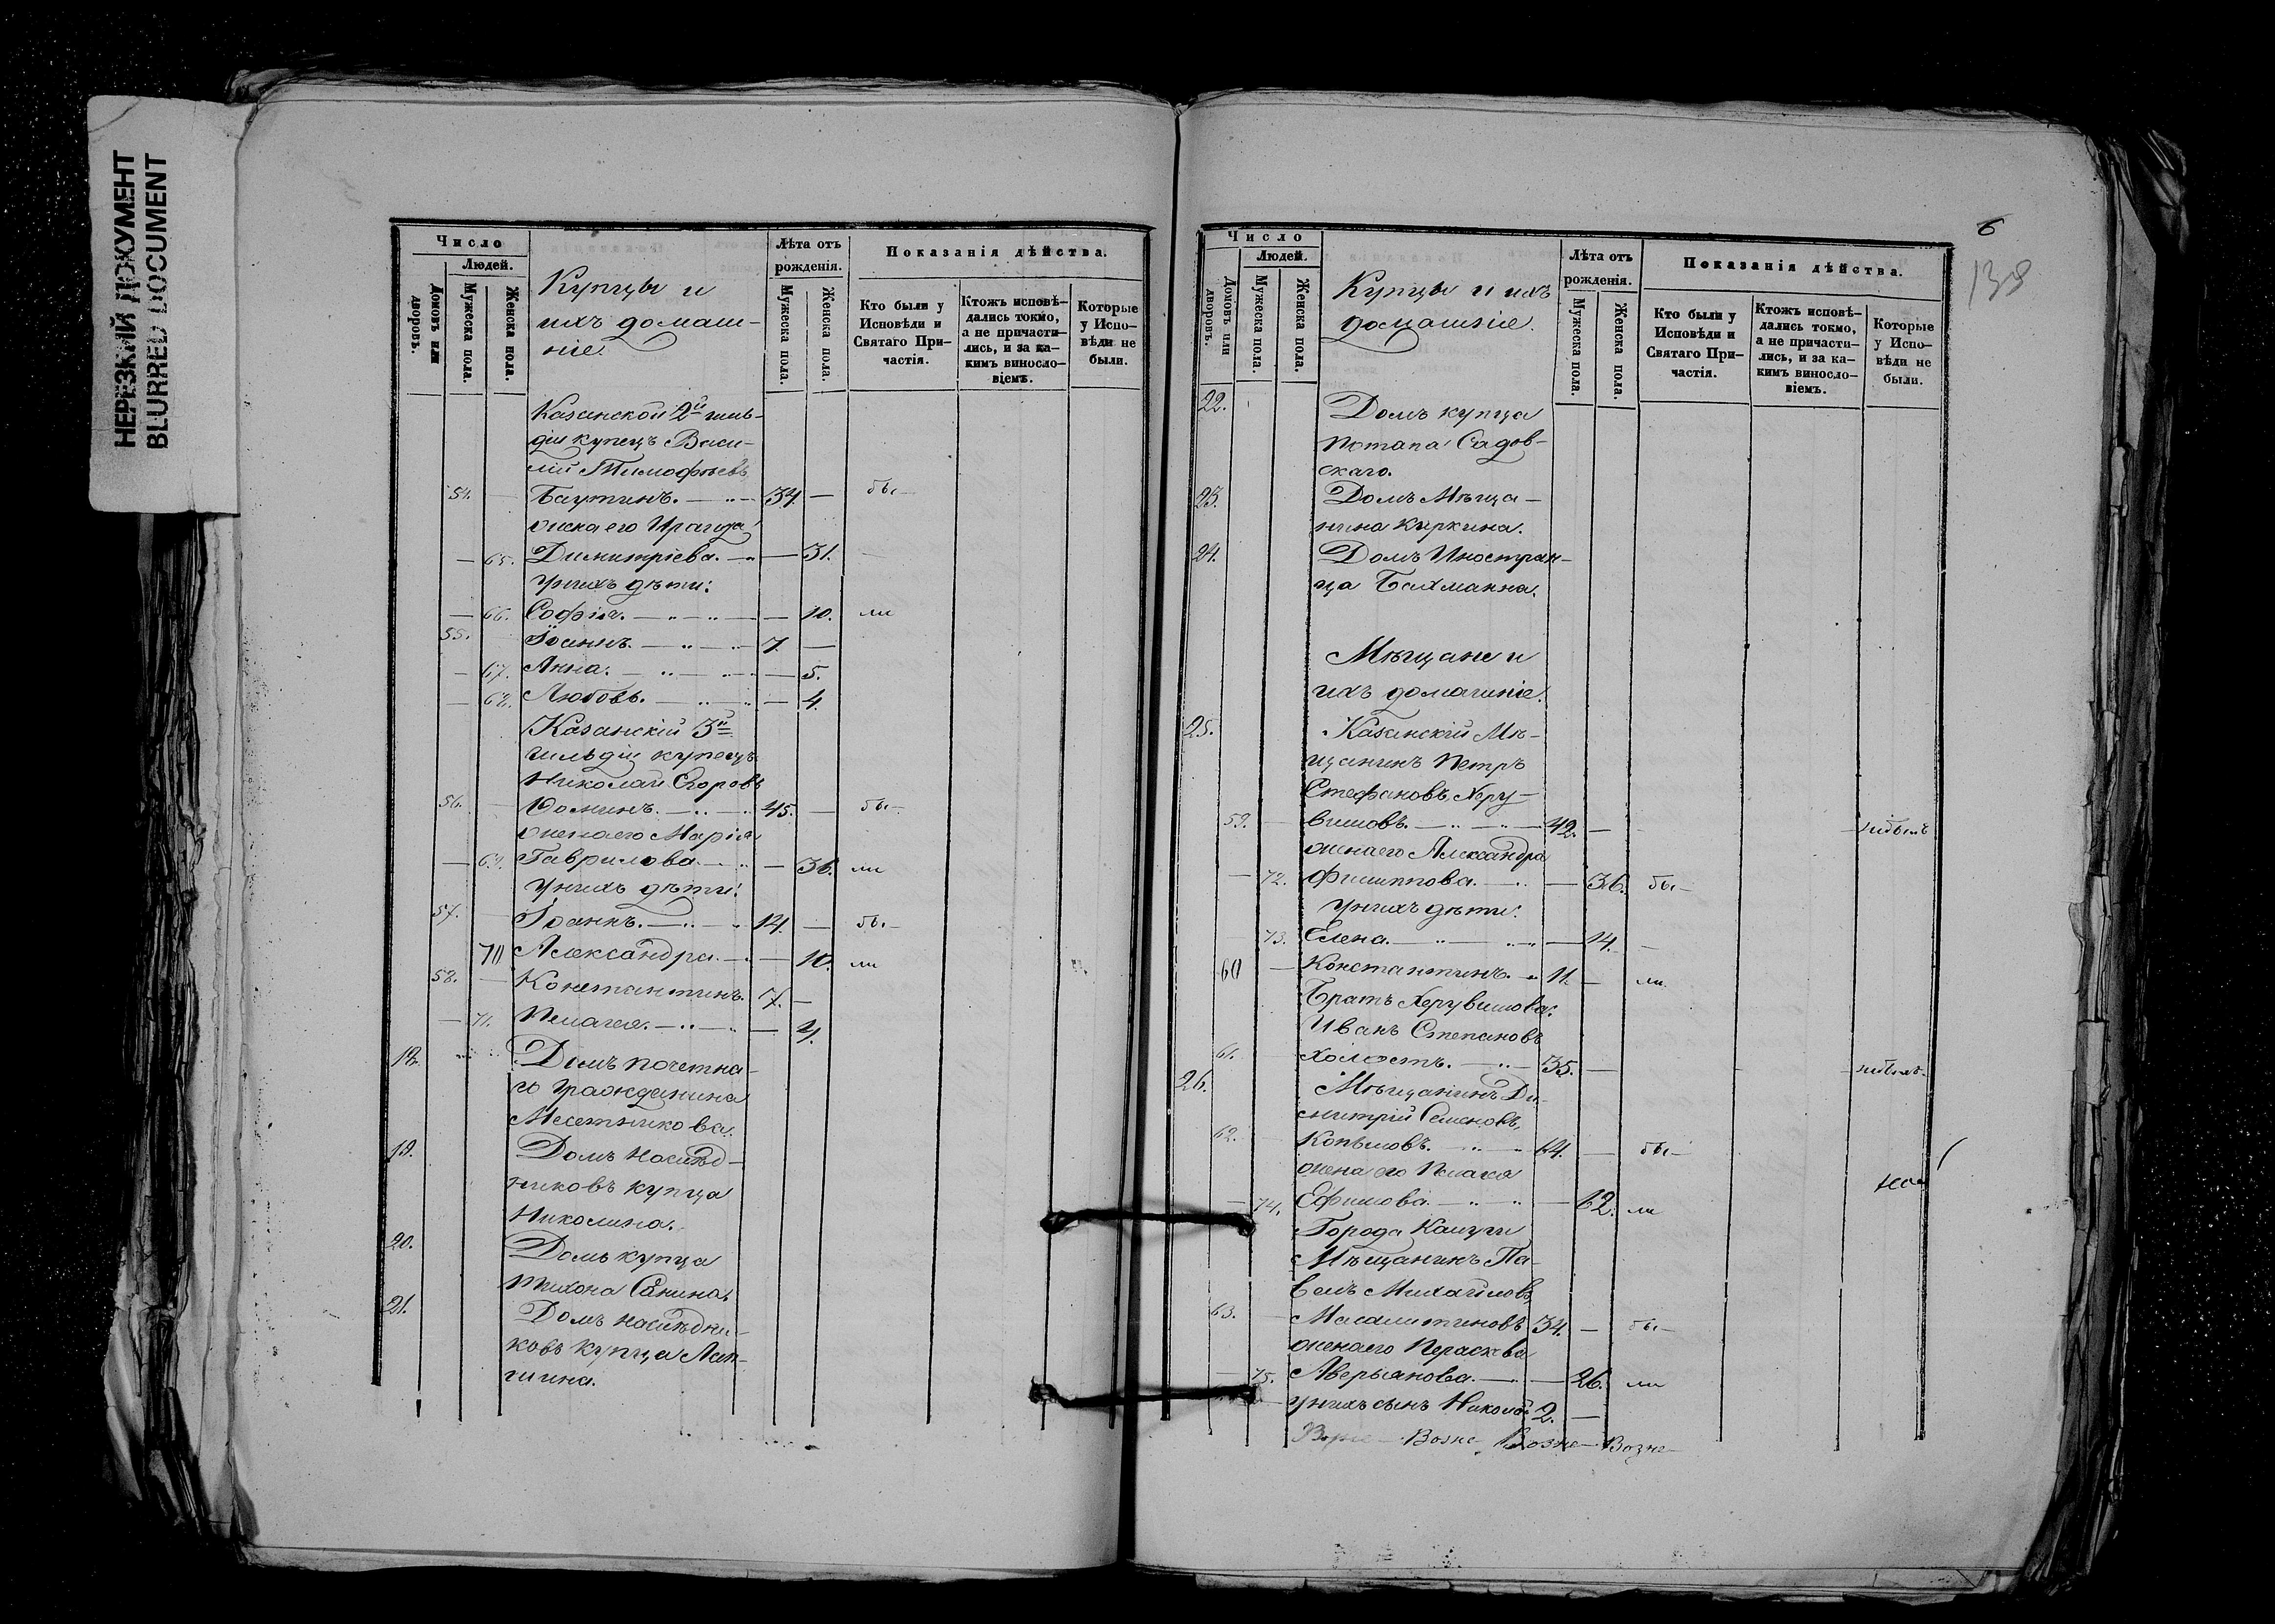 НЕРЕЗКИЙ ДОКУМЕНТ
BLURRED DOCUMENT
Число
Людей.
Домовъ или дворовъ.
Мужеска пола.
Женска пола.
Купцы и
ихъ домаш-
ніе.
Лѣта отъ
рожденія.
Мужеска пола.
Женска пола.
Показанія дѣйства.
Кто были у
Исповѣди и
Святаго При-
частія.
Ктожъ исповѣ-
дались токмо,
а не причасти-
лись, и за ка-
кимъ виносло-
віемъ.
Которые
у Испо-
вѣди не
были.
Казанской 2й гиль-
діи купецъ Васи-
лій Тимофѣевъ
54. — Баутинъ. — 34 — бы-
жена его Ираида
— 65. Димитріева. — 31. —
У нихъ дѣти:
— 66. Софія. — 10. ли
55. Іоаннъ. — 7. —
— 67. Анна. — 5.
— 68. Любовь. — 4.
Казанскій 3й
гильдіи купецъ
Николай Егоровъ
56. — Юоминъ. — 45. — бы-
жена его Марія
— 69. Гаврилова. — 36. ли
У нихъ дѣти:
57. — Іоаннъ. — 14. — бы-
70 Александра. — 10. ли
58. — Константинъ. 7. —
— 71. Пелагея. — 4.
18. Домъ почетна-
го Гражданина
Месетникова.
19. Домъ наслѣд-
никовъ купца
Николина.
20. Домъ купца
Тихона Санина.
21. Домъ наслѣдни-
ковъ купца Лап-
шина.
6
138
Число
Людей.
Домовъ или дворовъ.
Мужеска пола.
Женска пола.
Купцы и ихъ
домашніе.
Лѣта отъ
рожденія.
Мужеска пола.
Женска пола.
Показанія дѣйства.
Кто были у
Исповѣди и
Святаго При-
частія.
Ктожъ исповѣ-
дались токмо,
а не причасти-
лись, и за ка-
кимъ виносло-
віемъ.
Которые
у Испо-
вѣди не
были.
22. Домъ купца
Потапа Садов-
скаго.
23. Домъ Мѣща-
нина Куркина.
24. Домъ Иностран-
ца Бахманна.
Мѣщане и
ихъ домашніе.
25. Казанскій Мѣ-
щанинъ Петръ
Стефановъ Херу-
59. — вимовъ. — 42. — небылъ
жена его Александра
— 72. Филиппова. — 36. бы-
У нихъ дѣти:
73. Елена. — 14. —
60 — Константинъ. 11. — ли
Братъ Херувимова:
Иванъ Степановъ
61. холостъ. — 35. — небылъ
26. Мѣщанинъ Ди-
митрій Семеновъ
62. Копѣмовъ. — 64. — бы-
жена его Пелагея
— 74. Ефимова. — 62. ли
Города Калуги
Мѣщанинъ Па-
велъ Михайловъ
63. — Масалитиновъ 34. — бы-
жена его Параскева
— 75. Аверьянова. — 26. ли
У нихъ сынъ Николай 2. —
Возне Возне- Возне-